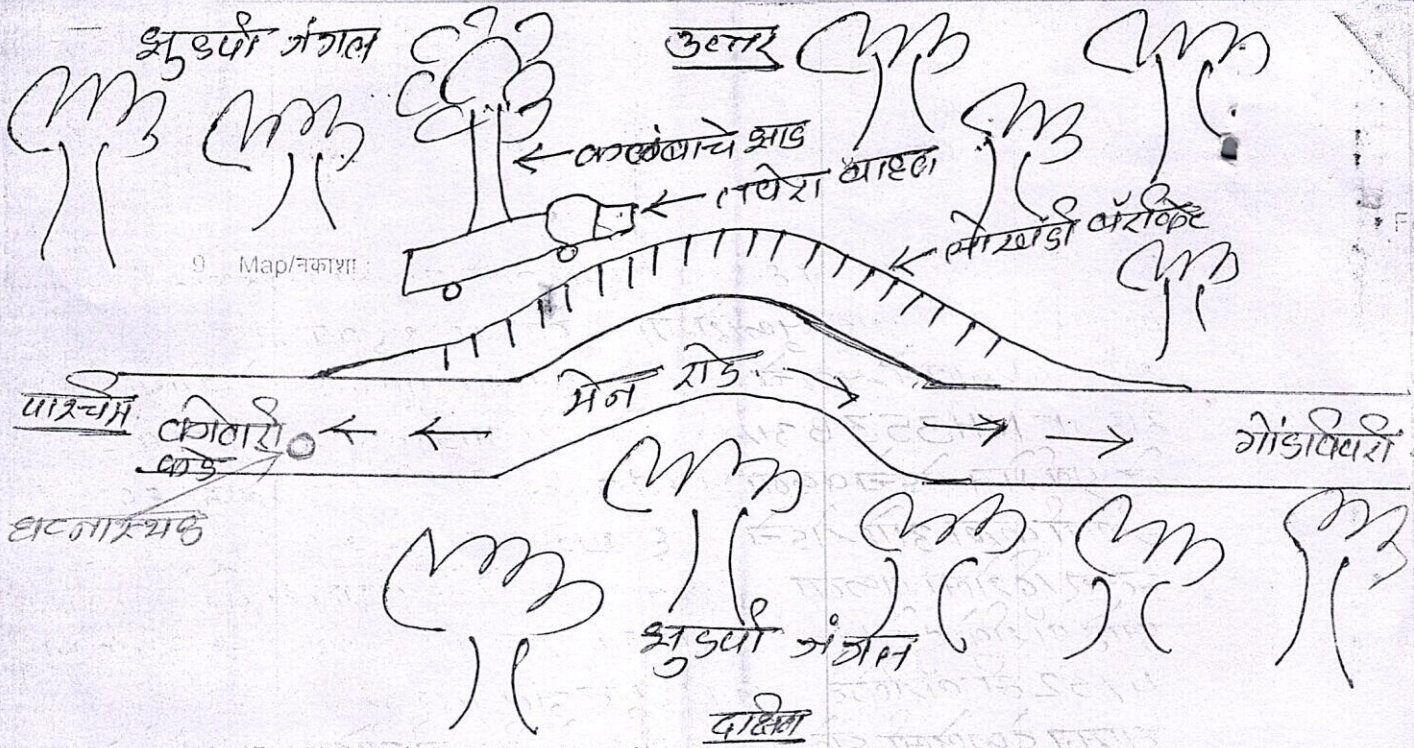 झुडपी जंगल
उत्तर
कळंबाचे झाड
वाहन
लोखंडी बॅरिकेट
9 Map/नकाशा
मेन रोड
पश्चिम
कडे
घटनास्थळ
झुडपी जंगल
दक्षिण